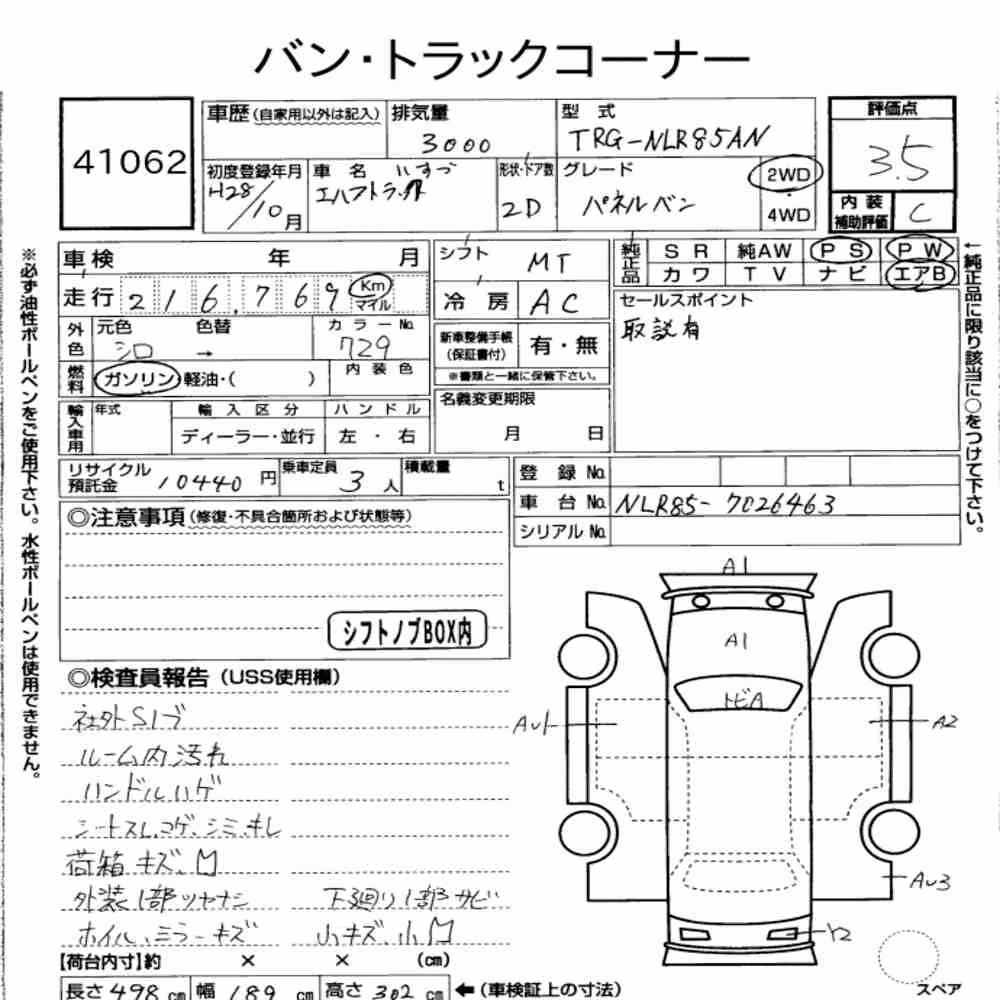 バン・トラックコーナー
41062
車歴(自家用以外は記入)
排気量
3000
型式
TRG-NLR85AN
評価点
3.5
内装補助評価
C
初度登録年月
H28/10月
車名
いすゞ
エルフトラック
形状・ドア数
2D
グレード
パネルバン
2WD
・
4WD
車検 年 月
走行 216,769 Km
マイル
外色
元色 色替
シロ →
カラーNo.
729
燃料
ガソリン・軽油・( )
内装色
輸入車用
年式
輸入区分
ディーラー・並行
ハンドル
左・右
シフト MT
冷房 AC
新車整備手帳
(保証書付)
有・無
※書類と一緒に保管下さい。
名義変更期限
月 日
純正品
SR 純AW PS PW
カワ TV ナビ エアB
セールスポイント
取説有
←純正品に限り該当に○をつけて下さい。
※必ず油性ボールペンをご使用下さい。水性ボールペンは使用できません。
リサイクル預託金
10440円
乗車定員
3人
積載量
t
登録No.
車台No. NLR85-7026463
シリアルNo.
◎注意事項(修復・不具合箇所および状態等)
シフトノブBOX内
◎検査員報告(USS使用欄)
社外Sノブ
ルーム内汚れ
ハンドルハゲ
シートスレ、コゲ、シミ、キレ
荷箱キズ、凹
外装1部ツヤナシ
下廻り1部サビ
ホイル、ミラーキズ
小キズ、小凹
A1
A1
トビA
AU1
A2
AU3
Y2
スペア
【荷台内寸】約 × × (cm)
長さ498cm 幅189cm 高さ302cm ←(車検証上の寸法)